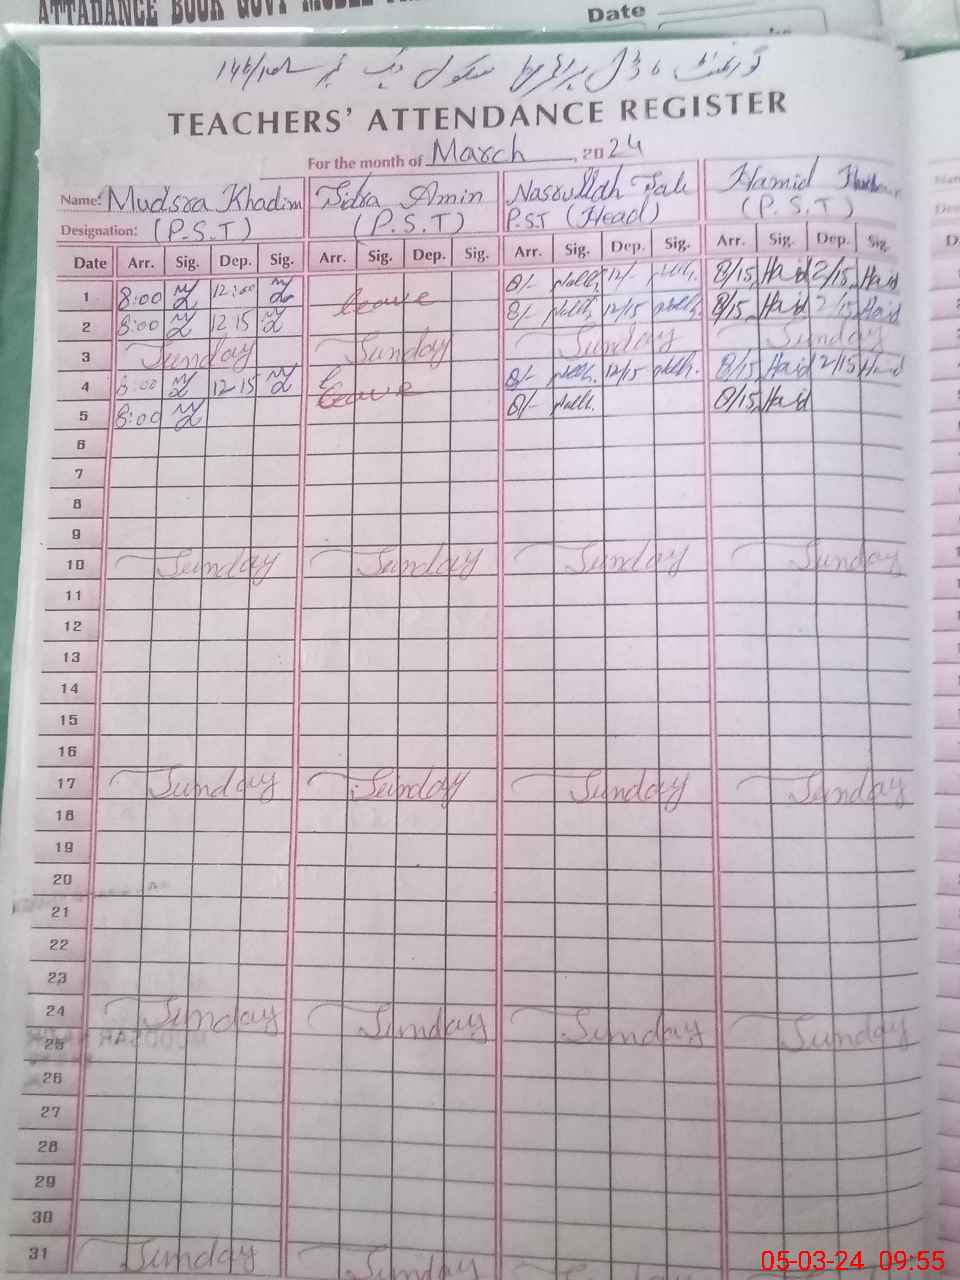 ATTADANCE BOOK GOVT MODEL
Date
گورنمنٹ ماڈل پرائمری سکول چک نمبر
TEACHERS' ATTENDANCE REGISTER
For the month of March, 2024
Name: Mudsra Khadim Sidra Amin Nasrullah Hamid
Designation: (P.S.T) (P.S.T) P.S.T (Head) (P.S.T)
Date Arr. Sig. Dep. Sig. Arr. Sig. Dep. Sig. Arr. Sig. Dep. Sig. Arr. Sig. Dep. Sig.
1 8:00 12:00 Leave 8/- 12/- 8/15 Haid 2/15 Haid
2 8:00 12 15 8/- 12/15 8/15 Haid 2/15 Haid
3 Sunday Sunday Sunday Sunday
4 8:00 12 15 Leave 8/- 12/15 8/15 Haid 2/15 Haid
5 8:00 8/- 8/15 Haid
6
7
8
9
10 Sunday Sunday Sunday Sunday
11
12
13
14
15
16
17 Sunday Sunday Sunday Sunday
18
19
20
21
22
23
24 Sunday Sunday Sunday Sunday
25
26
27
28
29
30
31 Sunday Sunday
05-03-24 09:55